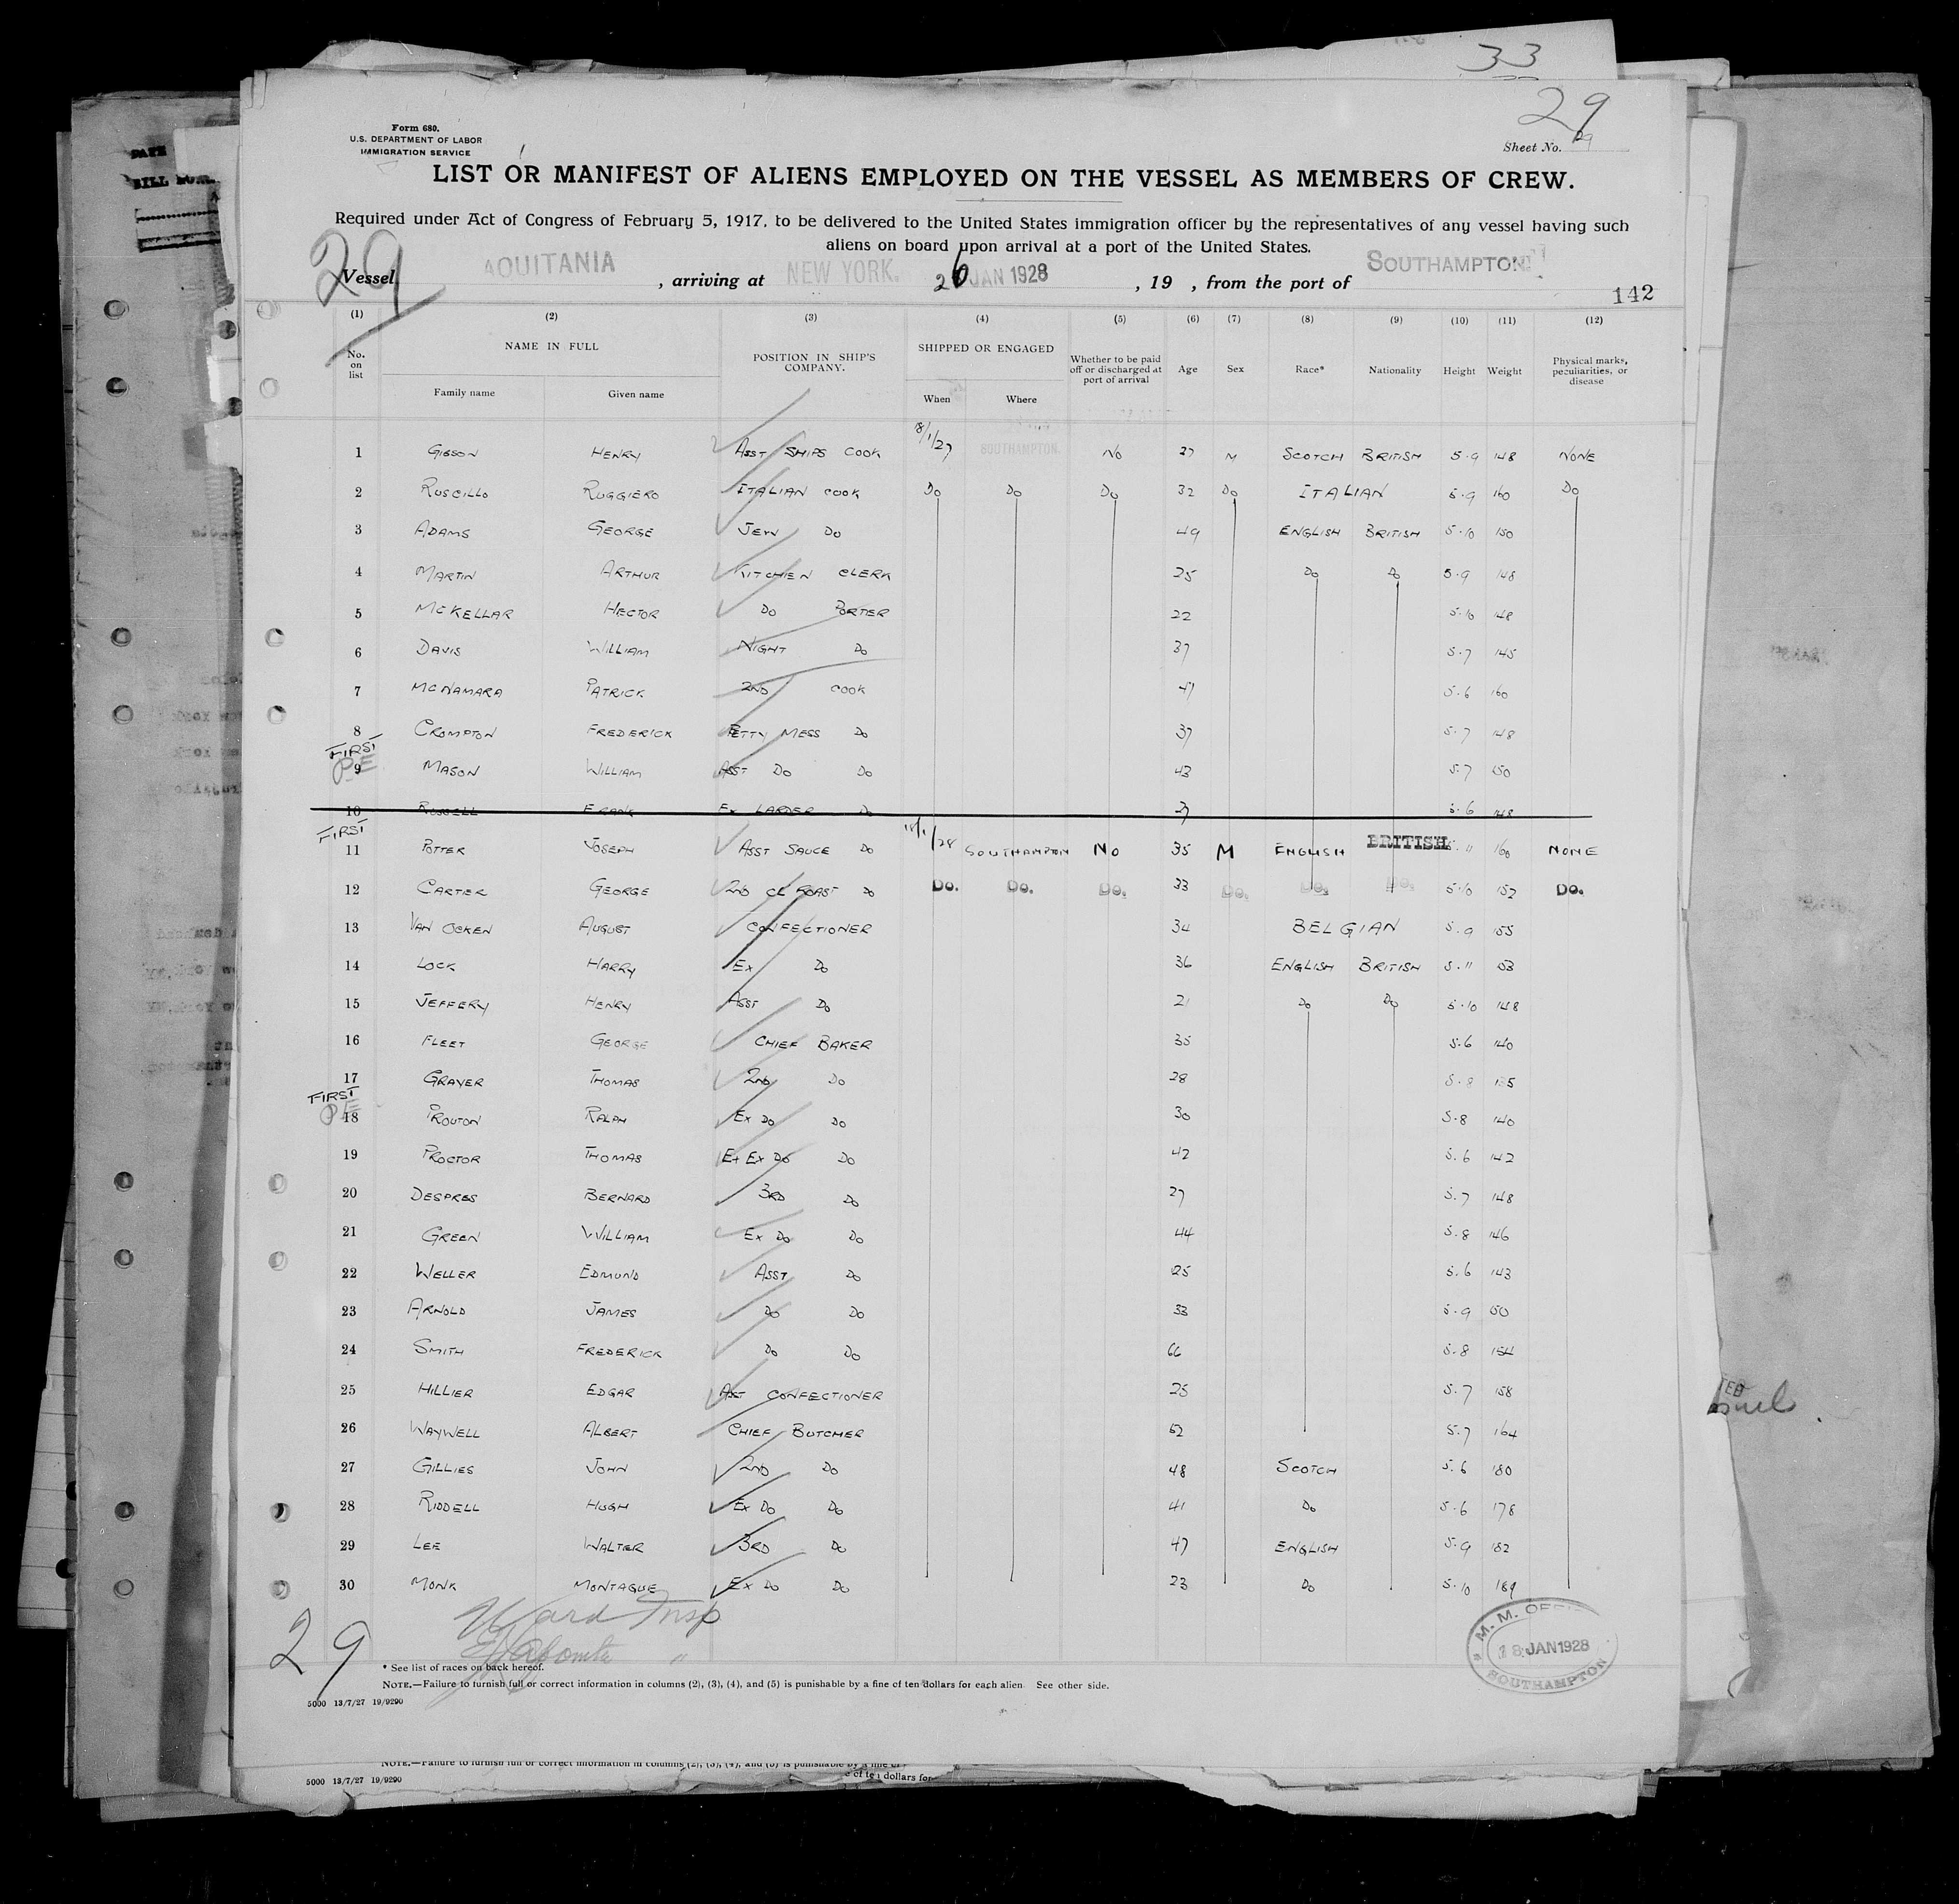 33
29
Form 680.
U.S. DEPARTMENT OF LABOR
IMMIGRATION SERVICE
Sheet No. 29
LIST OR MANIFEST OF ALIENS EMPLOYED ON THE VESSEL AS MEMBERS OF CREW.
Required under Act of Congress of February 5, 1917, to be delivered to the United States immigration officer by the representatives of any vessel having such
aliens on board upon arrival at a port of the United States.
29
Vessel AQUITANIA, arriving at NEW YORK. 26 JAN 1928, 19 , from the port of SOUTHAMPTON
142
(1) (2) (3) (4) (5) (6) (7) (8) (9) (10) (11) (12)
No. on list NAME IN FULL POSITION IN SHIP'S COMPANY. SHIPPED OR ENGAGED Whether to be paid off or discharged at port of arrival Age Sex Race* Nationality Height Weight Physical marks, peculiarities, or disease
Family name Given name When Where
1 GIBSON HENRY ASST SHIPS COOK 18/1/27 SOUTHAMPTON. NO 27 M SCOTCH BRITISH 5.9 148 NONE
2 RUSCILLO RUGGIERO ITALIAN COOK DO DO DO 32 DO ITALIAN 5.9 160 DO
3 ADAMS GEORGE JEW DO 49 ENGLISH BRITISH 5.10 150
4 MARTIN ARTHUR KITCHEN CLERK 25 DO DO 5.9 148
5 MCKELLAR HECTOR DO PORTER 22 5.10 148
6 DAVIS WILLIAM NIGHT DO 37 5.7 145
7 MCNAMARA PATRICK 2ND COOK 47 5.6 160
8 CROMPTON FREDERICK PETTY MESS DO 37 5.7 148
FIRST
PE
9 MASON WILLIAM ASST DO DO 43 5.7 150
10 RUSSELL FRANK EX LARDER DO 27 5.6 148
FIRST
11 POTTER JOSEPH ASST SAUCE DO 18/1/28 SOUTHAMPTON NO 35 M ENGLISH BRITISH 5.11 160 NONE
12 CARTER GEORGE 2ND CL ROAST DO DO. DO. DO. 33 DO. DO. DO. 5.10 152 DO.
13 VAN OCKEN AUGUST CONFECTIONER 34 BELGIAN 5.9 155
14 LOCK HARRY EX DO 36 ENGLISH BRITISH 5.11 53
15 JEFFERY HENRY ASST DO 21 DO DO 5.10 148
16 FLEET GEORGE CHIEF BAKER 35 5.6 140
17 GRAYER THOMAS 2ND DO 28 5.8 135
FIRST
PE
18 PROUTON RALPH EX DO DO 30 5.8 140
19 PROCTOR THOMAS EX EX DO DO 42 5.6 142
20 DESPRES BERNARD 3RD DO 27 5.7 148
21 GREEN WILLIAM EX DO DO 44 5.8 146
22 WELLER EDMUND ASST DO 25 5.6 143
23 ARNOLD JAMES DO DO 33 5.9 150
24 SMITH FREDERICK DO DO 66 5.8 154
25 HILLIER EDGAR AST CONFECTIONER 25 5.7 158
26 WAYWELL ALBERT CHIEF BUTCHER 52 5.7 164
27 GILLIES JOHN 2ND DO 48 SCOTCH 5.6 180
28 RIDDELL HUGH EX DO DO 41 DO 5.6 178
29 LEE WALTER 3RD DO 47 ENGLISH 5.9 182
30 MONK MONTAGUE EX DO DO 23 DO 5.10 189
Ward Insp
29
M. M. OFFICE
18 JAN 1928
SOUTHAMPTON
* See list of races on back hereof.
NOTE.—Failure to furnish full or correct information in columns (2), (3), (4), and (5) is punishable by a fine of ten dollars for each alien. See other side.
5000 13/7/27 19/9290
NOTE.—Failure to furnish full or correct information in columns (2), (3), (4), and (5) is punishable by a fine of
of ten dollars for
5000 13/7/27 19/9290